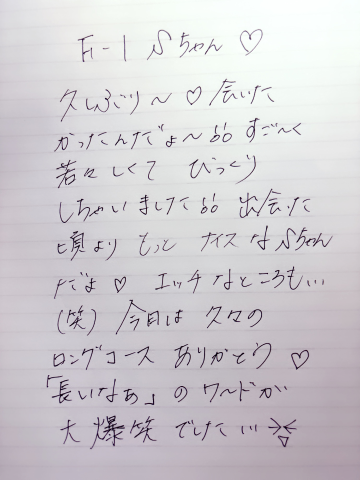 Fi-1 Sちゃん ♡
久しぶり〜♡会いた
かったんだょ〜!! すご〜く
若々しくて びっくり
しちゃいました!! 出会った
頃より もっと ナイスなSちゃん
だょ♡ エッチなところも...
(笑) 今日は 久々の
ロングコース ありがとう♡
「長いなぁ」のワードが
大爆笑でした...